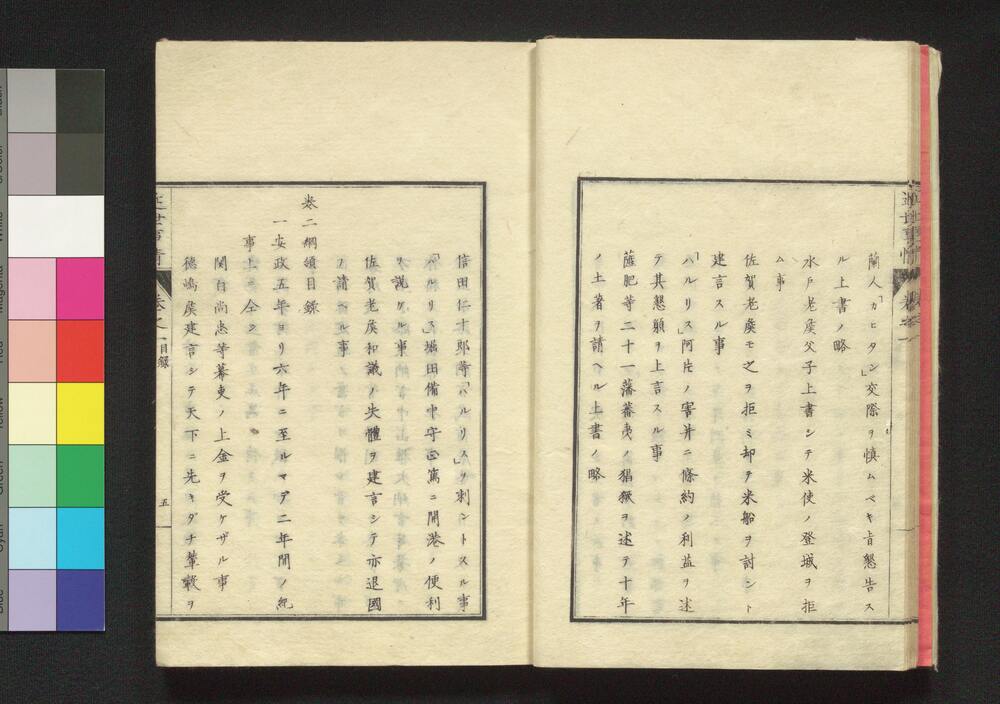 蘭人「カヒタン」交際ヲ慎ムベキ旨懇告ス
ル上書ノ略
水戸老侯父子上書シテ米使ノ登城ヲ拒
ム事
佐賀老侯モ之ヲ拒ミ却テ米船ヲ討ント
建言スル事
「ハルリス」阿片ノ害并ニ條約ノ利益ヲ述
テ其懇願ヲ上言スル事
薩肥等二十一藩蕃夷ノ猖獗ヲ述テ十年
ノ土著ヲ請ヘル上書ノ略
信田仁十郎等「ハルリス」ヲ刺ントスル事
「ハルリス」堀田備中守正篤ニ開港ノ便利
ヲ説ケル事
佐賀老侯和議ノ失體ヲ建言シテ亦退國
ヲ請ヘル事
卷二綱領目録
一安政五年ヨリ六年ニ至ルマデ二年間ノ紀
事上ニ仝シ
関白尚忠等幕吏ノ上金ヲ受ケザル事
徳嶋侯建言シテ天下ニ先キダチ輦轂ヲ
近世事情
卷之一
目録
五